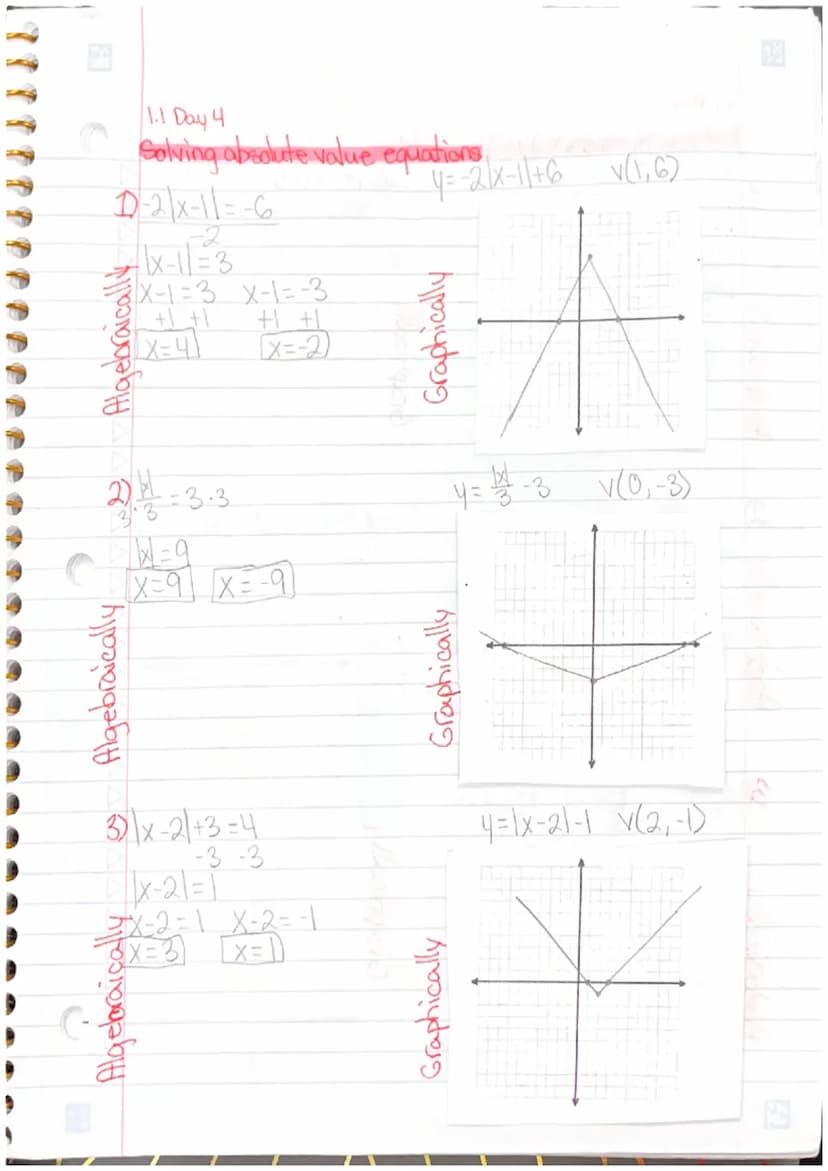 1.1 Day 4
Solving absolute value equations
y=-2|x-1|+6 v(1,6)
1) -2|x-1|=-6
-2
|x-1|=3
x-1=3 x-1=-3
+1 +1 +1 +1
x=4 x=-2
Algebraically
Graphically
2) |x|
3· 3 =3·3
|x|=9
x=9 x=-9
y=|x|/3 -3 v(0,-3)
Algebraically
Graphically
3) |x-2|+3=4
-3 -3
|x-2|=1
x-2=1 x-2=-1
x=3 x=1
y=|x-2|-1 v(2,-1)
Algebraically
Graphically